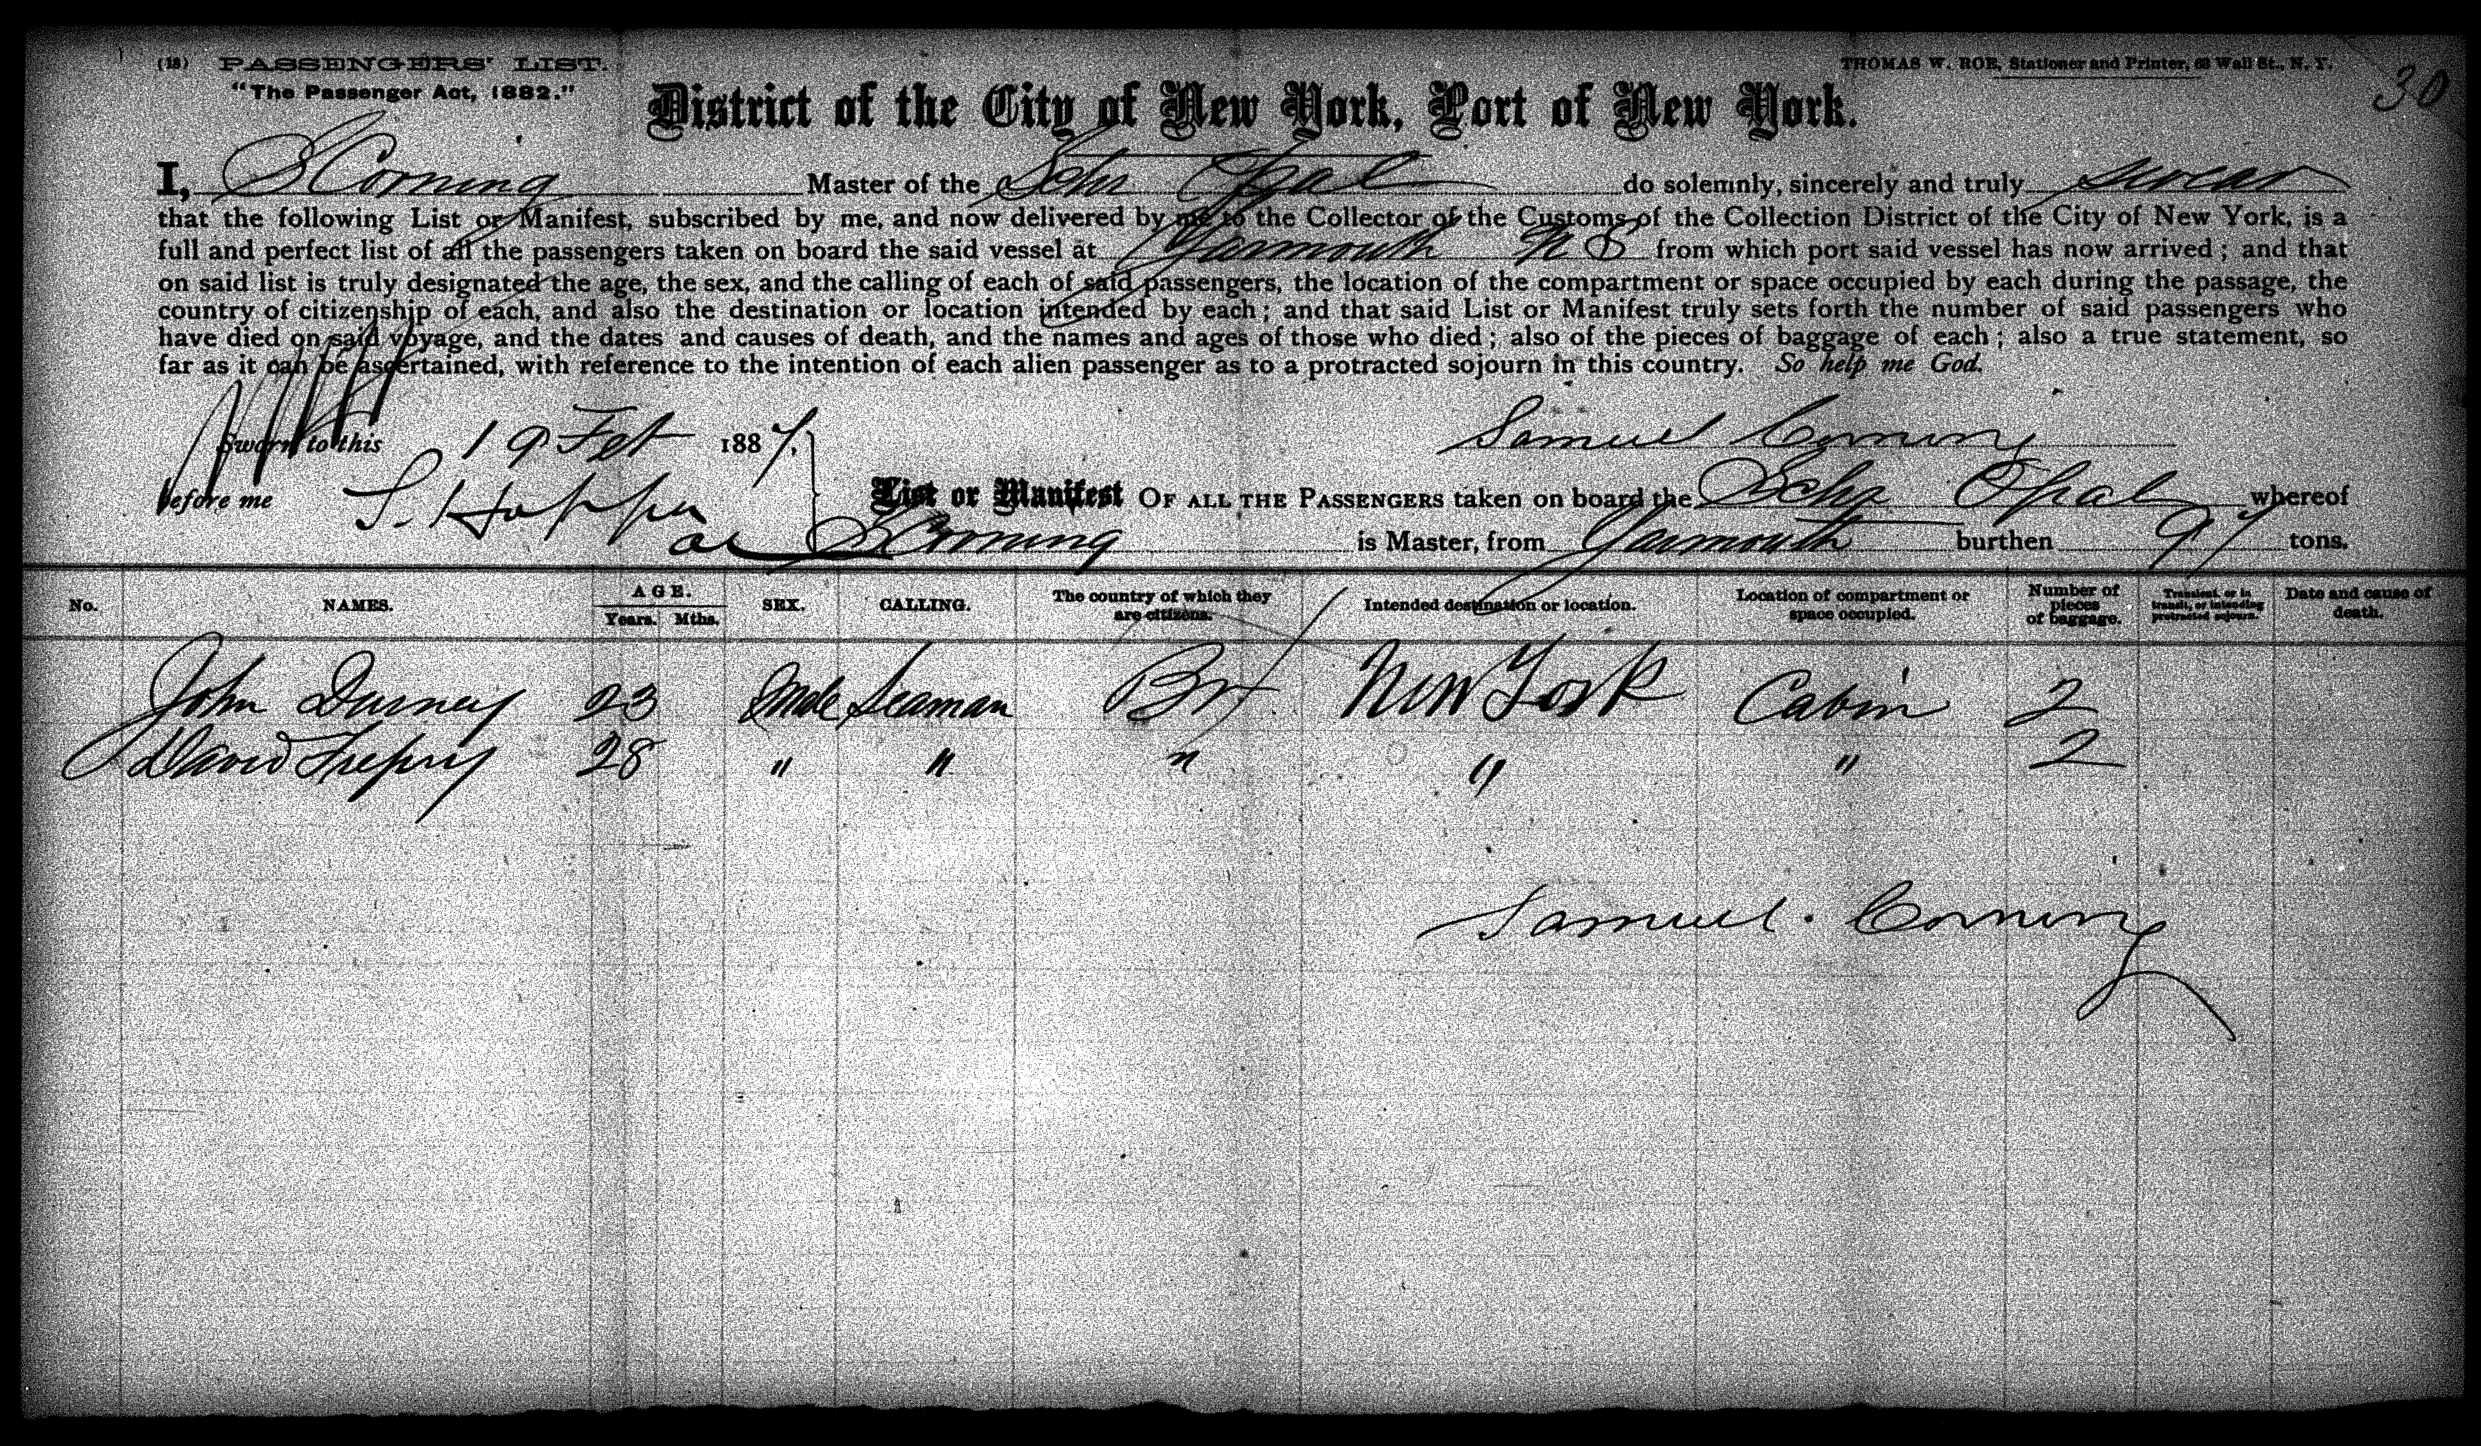 (18) PASSENGERS' LIST.
"The Passenger Act, 1882."
THOMAS W. ROE, Stationer and Printer, 63 Wall St., N. Y.
30
District of the City of New York, Port of New York.
I, S Corning Master of the Schr Opal do solemnly, sincerely and truly swear
that the following List or Manifest, subscribed by me, and now delivered by me to the Collector of the Customs of the Collection District of the City of New York, is a
full and perfect list of all the passengers taken on board the said vessel at Yarmouth N S from which port said vessel has now arrived; and that
on said list is truly designated the age, the sex, and the calling of each of said passengers, the location of the compartment or space occupied by each during the passage, the
country of citizenship of each, and also the destination or location intended by each; and that said List or Manifest truly sets forth the number of said passengers who
have died on said voyage, and the dates and causes of death, and the names and ages of those who died; also of the pieces of baggage of each; also a true statement, so
far as it can be ascertained, with reference to the intention of each alien passenger as to a protracted sojourn in this country. So help me God.
Sworn to this 19 Feb 1887.
Samuel Corning
before me S. Hopper
List or Manifest OF ALL THE PASSENGERS taken on board the Schr Opal whereof
S Corning is Master, from Yarmouth burthen 97 tons.
No. NAMES. AGE. Years. Mths. SEX. CALLING. The country of which they are citizens. Intended destination or location. Location of compartment or space occupied. Number of pieces of baggage. Transient, or in transit, or intending protracted sojourn. Date and cause of death.
John Durney 23 Male Seaman Br New York Cabin 2
David Trefry 28 " " " " " 2
Samuel. Corning